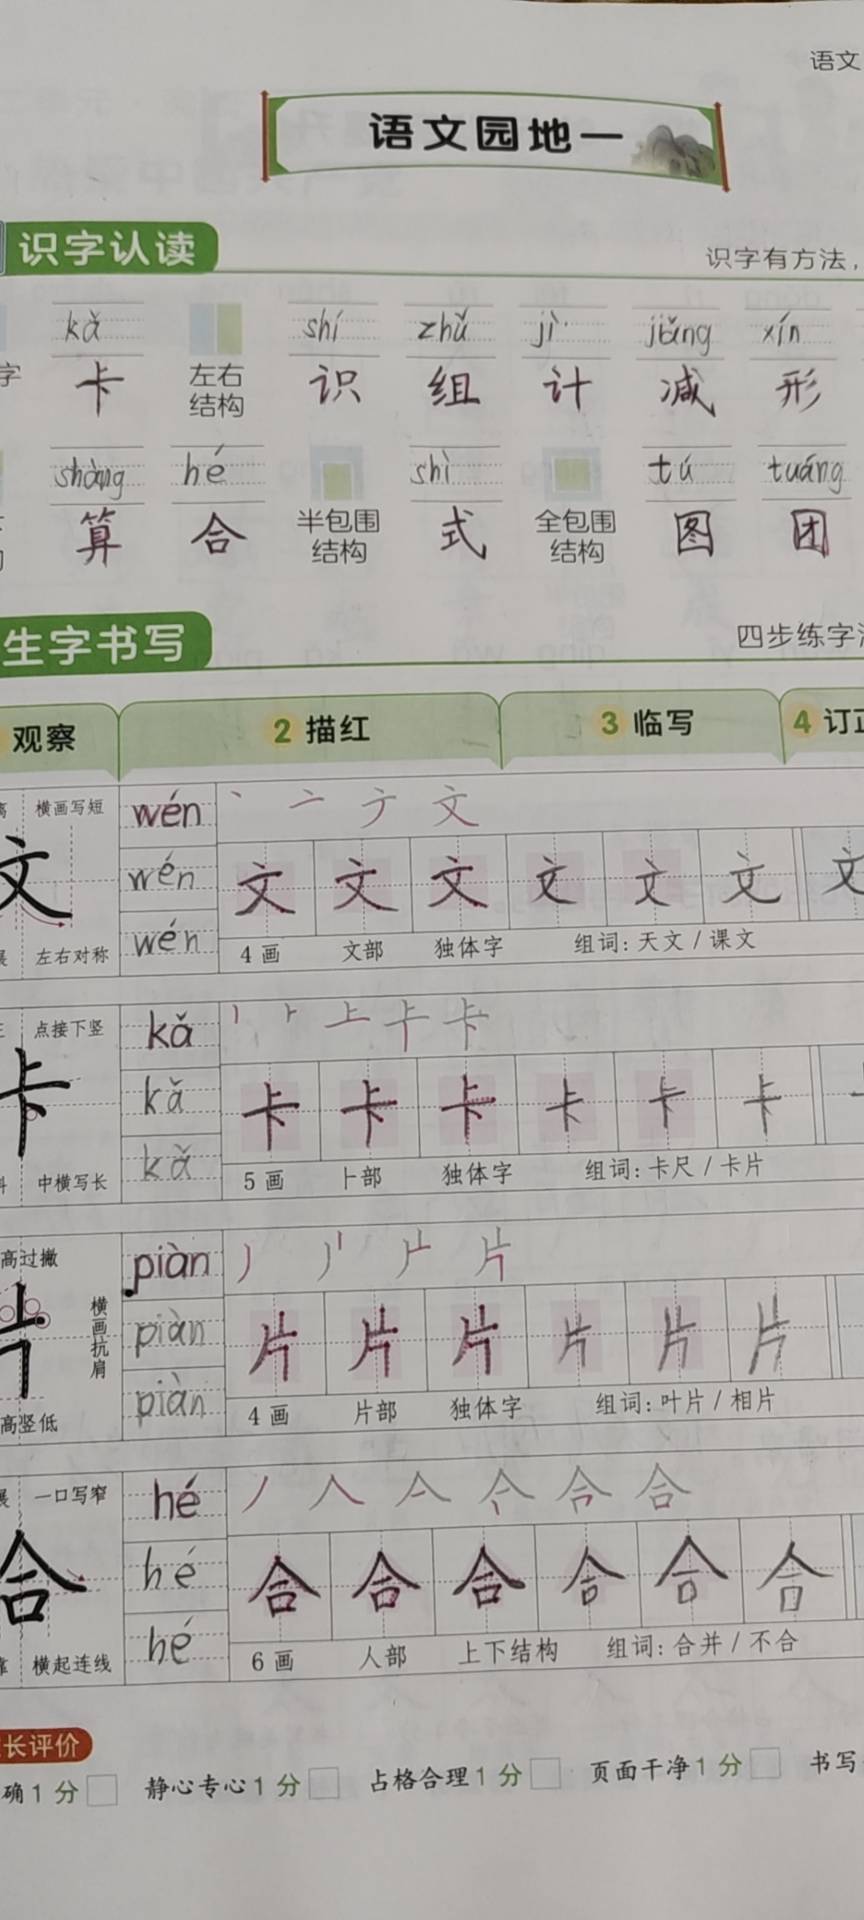 语文
语文园地一
识字认读
识字有方法，
kǎ shí zhǔ jì jiǎng xín
字 卡 左右结构 识 组 计 减 形
shàng hé shì tú tuáng
算 合 半包围结构 式 全包围结构 图 团
生字书写
四步练字
观察 2 描红 3 临写 4 订正
横画写短 wén 丶 亠 ナ 文
文 wén 文 文 文 文 文 文 文
左右对称 wén 4画 文部 独体字 组词：天文/课文
点接下竖 kǎ 丨 ⺊ 上 卡 卡
卡 kǎ 卡 卡 卡 卡 卡 卡
中横写长 kǎ 5画 卜部 独体字 组词：卡尺/卡片
高过撇 piàn 丿 片
片 横画抗肩 piàn 片 片 片 片 片 片
高竖低 piàn 4画 片部 独体字 组词：叶片/相片
展 一口写窄 hé 丿 人 亼 合 合
合 hé 合 合 合 合 合 合
靠 横起连线 hé 6画 人部 上下结构 组词：合并/不合
长评价
确1分 静心专心1分 占格合理1分 页面干净1分 书写